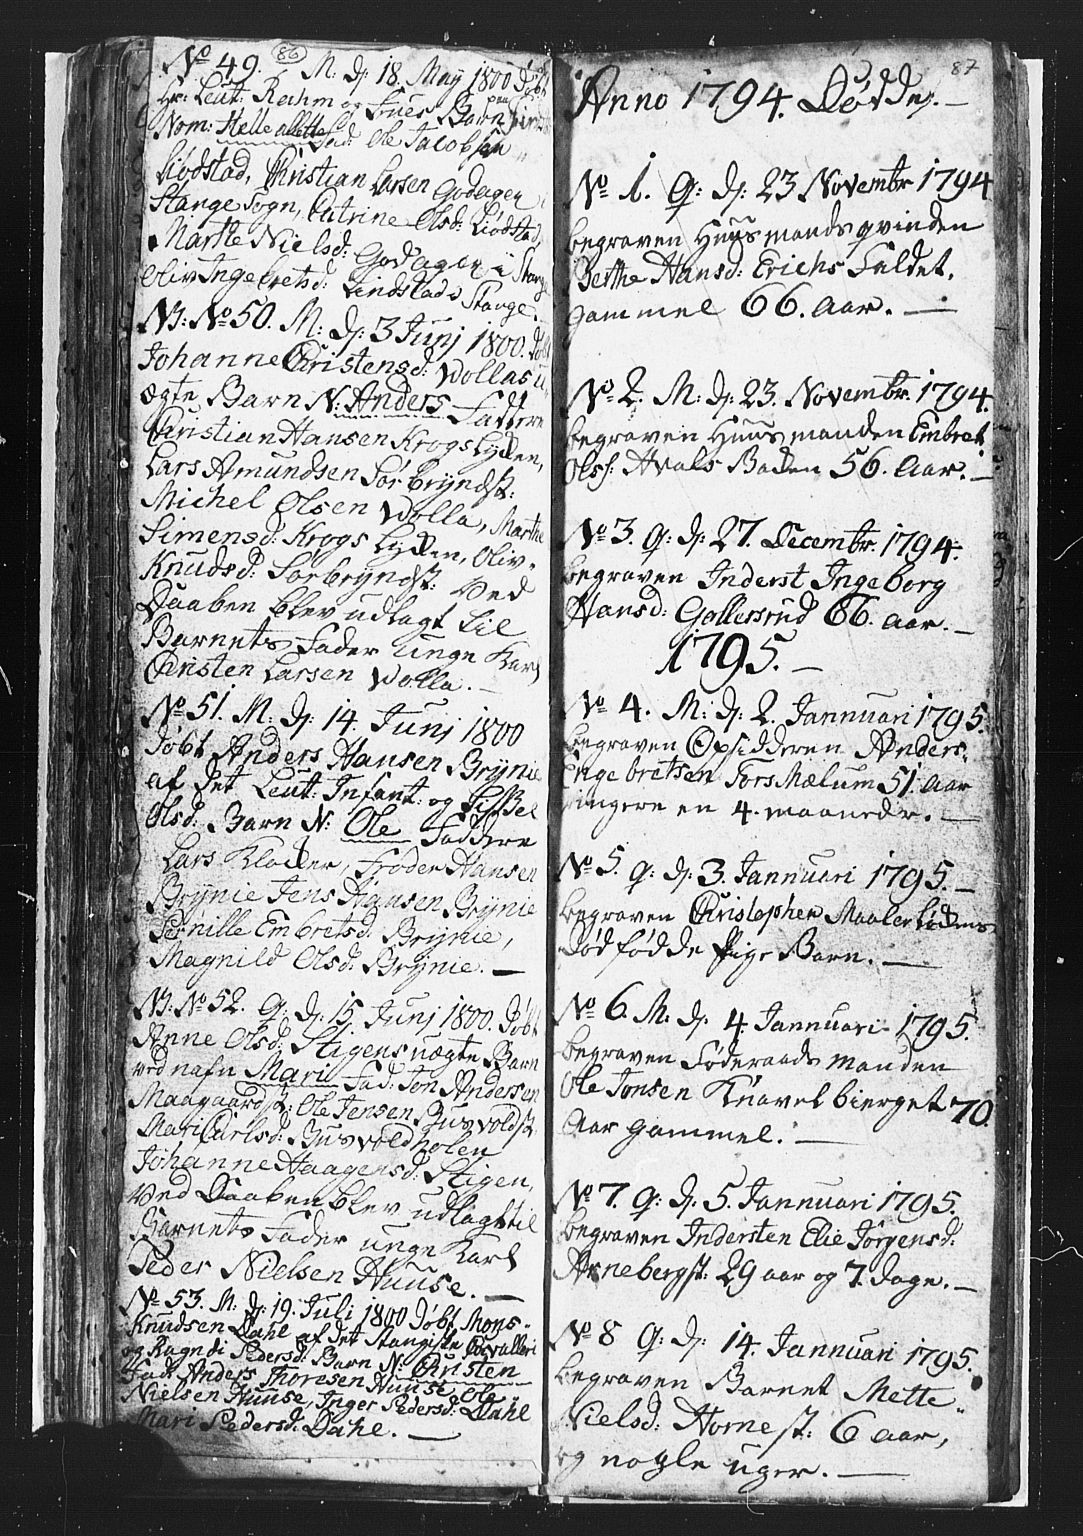 86
No 49. M: d: 18. May 1800 døbt
Hr: Leut: Ræhm og Frues Barn
Nom: Helle alette Fad: Ole Jacobsen
Kiødstad, Christian Larsen Godagen
Stange Sogn, Catrine Olsd: Kiødstad,
Marthe Nielsd: Godager i Stange
Oliv Ingebretsd: Lindstad Stange.
N: No 50. M: d: 3 Junj 1800. døbt
Johanne Christensd: Wollas u-
ægte Barn N: Anders Faddere
Christian Hansen Krogs lykken,
Lars Amundsen Sørbryndst:
Michel Olsen Wolla, Marthe
Simensd: Krogs lykken, Oliv
Knudsd: Sørbryndst: Ved
Daaben blev udlagt til
Barnets Fader unge Karl
Christen Larsen Wolla.
No 51. M: d: 14. Junj 1800
døbt Anders Hansen Brynie
af det Leut: Infant: og Sissel
Olsd: Barn N: Ole Faddere
Lars Klokker, Froder Hansen
Brynie Jens Hansen Brynie
Pernille Embretsd: Brynie,
Magnild Olsd: Brynie.
N: No 52. Q: d: 15 Junj 1800. døbt
Anne Olsd: Stigens uægte Barn
ved nafn Mari Fad: Jon Andersen
Maagaardst: Ole Jensen Busvoldst.
Mari Carlsd: Busvoldholen
Johanne Haagensd: Stigen,
Ved Daaben blev udlagt til
Barnets Fader unge Karl
Peder Nielsen Huuse.
No 53. M: d: 19. Juli 1800 døbt Mons
Knudsen Dahl af det Stangiske Cavalleri
og Ragndi Pedersd: Barn N: Christen
Fad: Anders Thoresen Huuse Ole
Nielsen Huuse, Inger Pedersd: Dahl
Mari Pedersd: Dahl.
87
Anno 1794. Døde.
No 1. Q: d: 23 Novembr 1794
begraven Huusmandsqvinden
Berthe Hansd: Erichs Feldet.
gammel 66. Aar.
No 2. M: d: 23. Novembr. 1794.
begraven Huusmanden Embret
Ols: Hvals Bakken 56. Aar.
No 3. Q: d: 27. Decembr. 1794.
begraven Inderst Ingeborg
Hansd: Gollersrud 66. aar.
1795.
No 4. M: d: 2. Jannuari 1795.
begraven Opsidderen Anders
Engebretsen Fors Mælum 51. Aar
ringere en 4. maaneder.
No 5. Q: d: 3. Jannuari 1795.
begraven Christopher Maalerløkens
Død fødde Pige Barn.
No 6. M. d. 4. Jannuari 1795.
begraven Føderaads manden
Ole Jonsen Knavelbierget 70.
Aar gammel.
No 7. Q: d. 5. Jannuari 1795.
begraven Indersten Elie Jørgensd:
Arnebergst: 29 aar og 7. dage.
No 8 Q: d: 14. Jannuari 1795.
begraven Barnet Mette
Nielsd: Hornest: 6 aar,
og nogle uger.